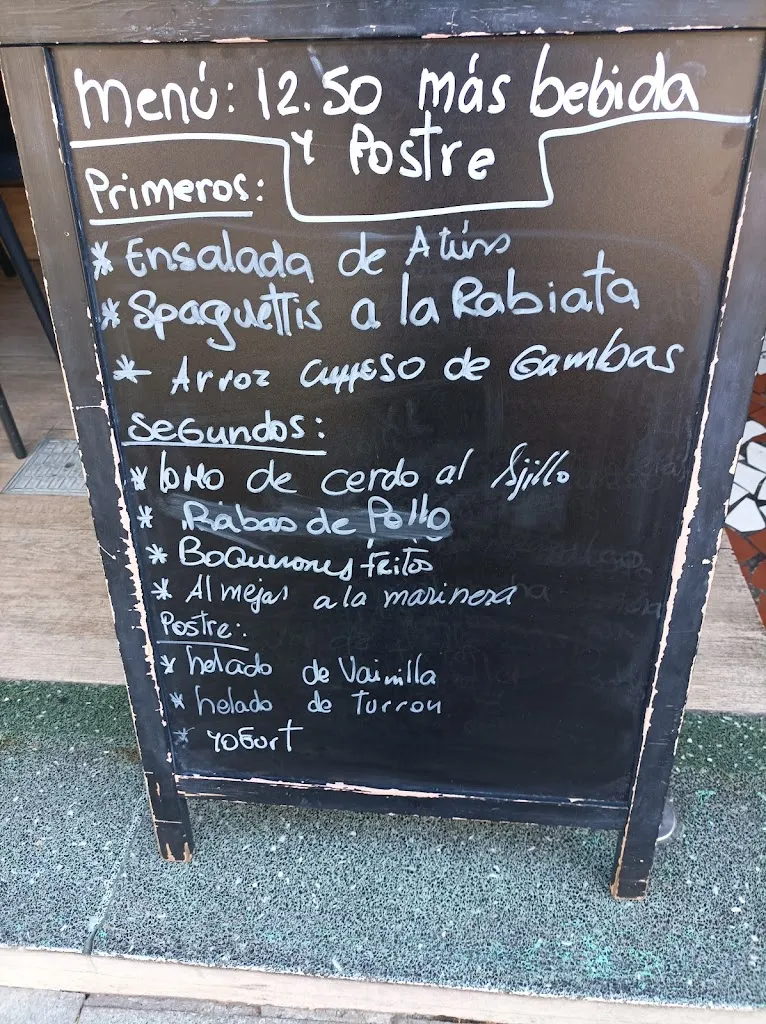 Menú: 12.50 más bebida
y Postre
Primeros:
* Ensalada de Atún
* Spaguettis a la Rabiata
* Arroz de Gambas
Segundos:
* lomo de cerdo al Ajillo
* Rabas de Pollo
* Boquerones fritos
* Almejas a la marinera
Postre:
* helado de Vainilla
* helado de Turron
* yogurt